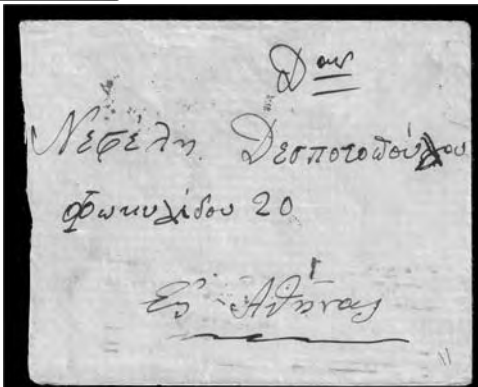 Δουν
Νεφέλη Δεσποτοπούλου
Φωκυλίδου 20
Εἰς Ἀθήνας
11